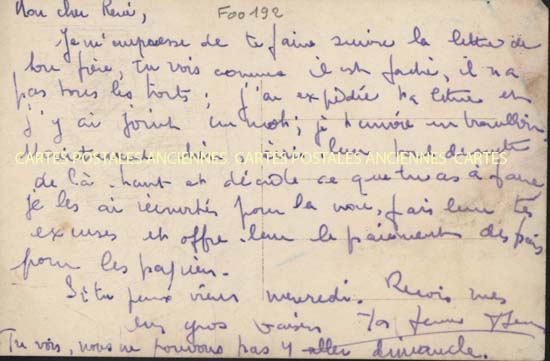 Mon cher René,
F00192
Je m'empresse de te faire suivre la lettre de
ton frère, tu vois comme il est fâché, il n'a
pas tous les torts ; j'ai expédié ta lettre et
j'y ai joint un mot ; je t'envoie un brouillon.
CARTES POSTALES ANCIENNES CARTES POSTALES ANCIENNES CARTES
Maintenant écris leur
de là-haut et décide ce que tu as à faire
je les ai pour la voie, fais leur tes
excuses et offre-leur le paiement des frais
pour les papiers.
Si tu peux viens mercredi. Reçois mes
plus gros baisers Ta femme
Tu vois, nous ne pouvons pas y aller dimanche.